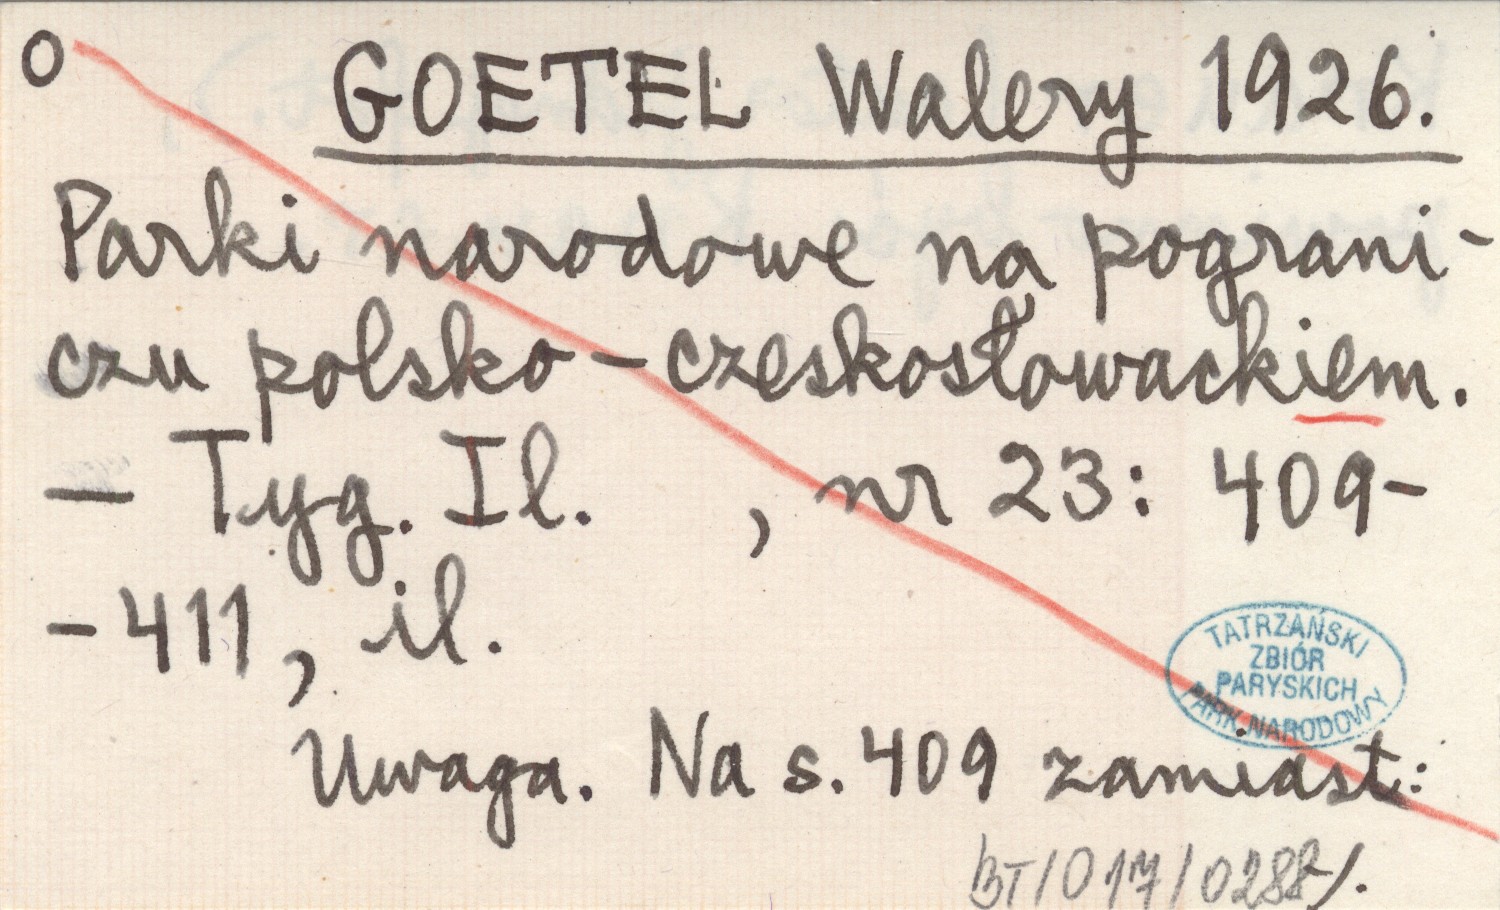 O
GOETEL Walery 1926.
Parki narodowe na pograni-
czu polsko-czeskosłowackiem.
- Tyg. Il. , nr 23: 409-
-411, il.
TATRZAŃSKI
ZBIÓR
PARYSKICH
PARK NARODOWY
Uwaga. Na s. 409 zamiast:
BT/017/0288/.